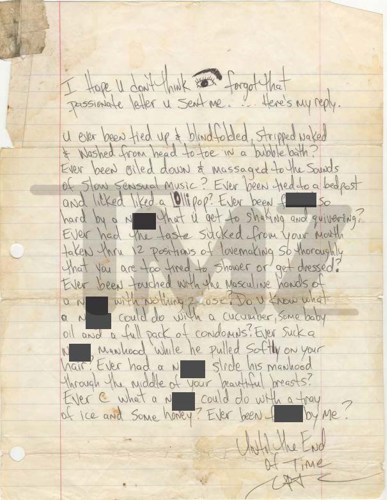 I Hope U don't think forgot that
passionate letter u sent me.... Here's my reply.
U ever been tied up & blindfolded, stripped naked
& washed from head to toe in a bubble bath?
Ever been oiled down & massaged to the sounds
of slow sensual music? Ever been tied to a bedpost
and licked liked a lollipop? Ever been f so
hard by a n that u get to shaking and quivering?
Ever had the taste sucked from your mouth
taken thru 12 positions of lovemaking so thoroughly
that you are too tired to shower or get dressed?
Ever been touched with the masculine hands of
a n with nothing 2 lose? Do u know what
a n could do with a cucumber, some baby
oil and a full pack of condoms? Ever suck a
n manhood while he pulled softly on your
hair? Ever had a n slide his manhood
through the middle of your beautiful breasts?
Ever C what a n could do with a tray
of ice and some honey? Ever been f by Me?
Until the End
of Time